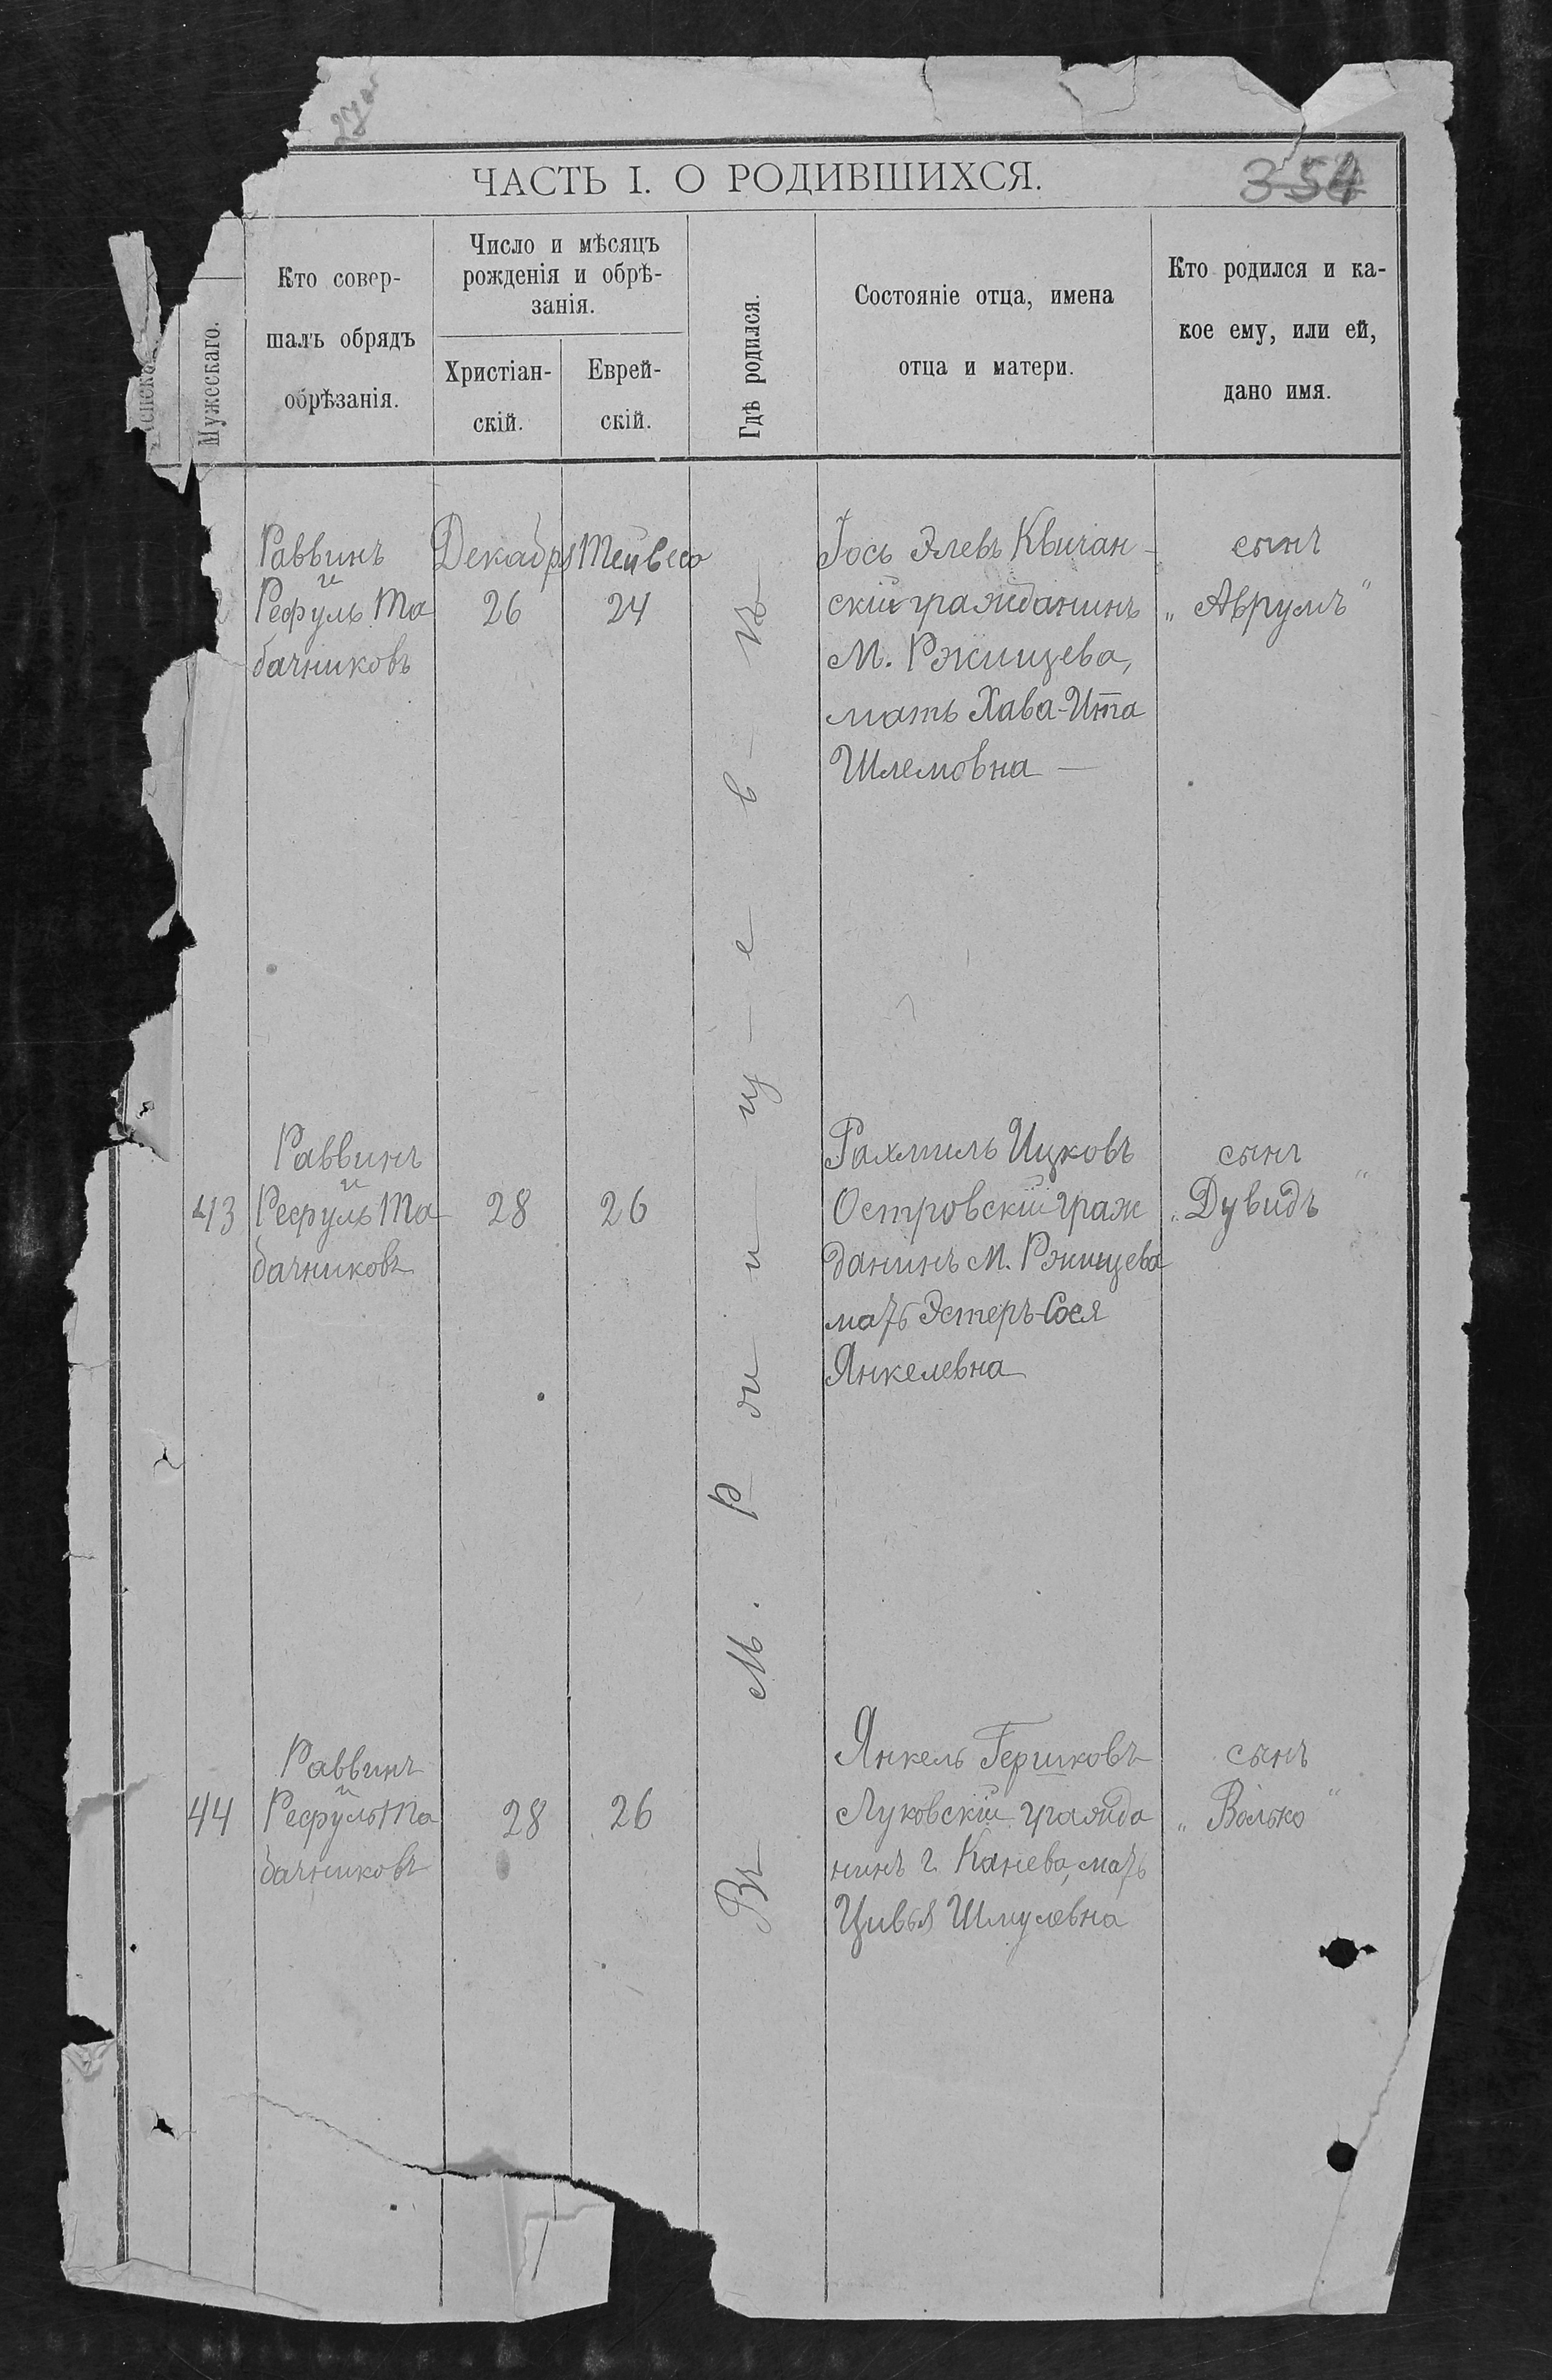 ЧАСТЬ I. О РОДИВШИХСЯ.
354
Мужескаго.
Кто совер-
шалъ обрядъ
обрѣзанія.
Число и мѣсяцъ
рожденія и обрѣ-
занія.
Христіан-
скій.
Еврей-
скій.
Гдѣ родился.
Состояніе отца, имена
отца и матери.
Кто родился и ка-
кое ему, или ей,
дано имя.
Въ М. Ржищевъ
Раввинъ
и
Рефуль Та
бачниковъ
Декабря
26
Тейвесо
24
Іось Элевъ Квичан-
скій гражданинъ
М. Ржищева,
мать Хава-Ита
Шлемовна —
сынъ
„Аврумъ"
43
Раввинъ
и
Рефуль Та
бачниковъ
28
26
Рахмиль Ицковъ
Островскій граж
данинъ М. Ржищева
мать Эстеръ-Сося
Янкелевна
сынъ
„Дувидъ"
44
Раввинъ
и
Рефуль Та
бачниковъ
28
26
Янкель Гершковъ
Луковскій гражда
нинъ г. Канева, мать
Цивья Шмулевна
сынъ
„Волько"